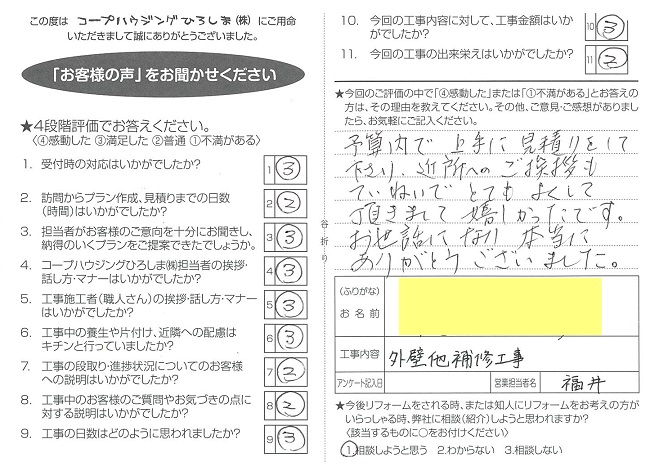 この度は コープハウジングひろしま(株) にご用命
いただきまして誠にありがとうございました。
「お客様の声」をお聞かせください
★4段階評価でお答えください。
〈④感動した ③満足した ②普通 ①不満がある〉
1. 受付時の対応はいかがでしたか? 1 ③
2. 訪問からプラン作成、見積りまでの日数
(時間)はいかがでしたか? 2 ②
3. 担当者がお客様のご意向を十分にお聞きし、
納得のいくプランをご提案できたでしょうか。 3 ③
4. コープハウジングひろしま㈱担当者の挨拶・
話し方・マナーはいかがでしたか? 4 ③
5. 工事施工者(職人さん)の挨拶・話し方・マナー
はいかがでしたか? 5 ③
6. 工事中の養生や片付け、近隣への配慮は
キチンと行っていましたか? 6 ③
7. 工事の段取り・進捗状況についてのお客様
への説明はいかがでしたか? 7 ②
8. 工事中のお客様のご質問やお気づきの点に
対する説明はいかがでしたか? 8 ②
9. 工事の日数はどのように思われましたか? 9 ③
谷折り
10. 今回の工事内容に対して、工事金額はいか
がでしたか? 10 ③
11. 今回の工事の出来栄えはいかがでしたか? 11 ②
★今回のご評価の中で「④感動した」または「①不満がある」とお答え
の方は、その理由を教えてください。その他、ご意見・ご感想がありまし
たら、お気軽にご記入ください。
予算内で 上手に見積りをして
下さり、近所へのご挨拶も
ていねいで とても よくして
頂きまして 嬉しかったです。
お世話になり 本当に
ありがとう ございました。
〈ふりがな〉
お名前
工事内容 外壁他補修工事
アンケート記入日 営業担当者名 福井
★今後リフォームをされる時、または知人にリフォームをお考えの方が
いらっしゃる時、弊社に相談(紹介)しようと思われますか?
〈該当するものに○をお付けください〉
①.相談しようと思う 2.わからない 3.相談しない